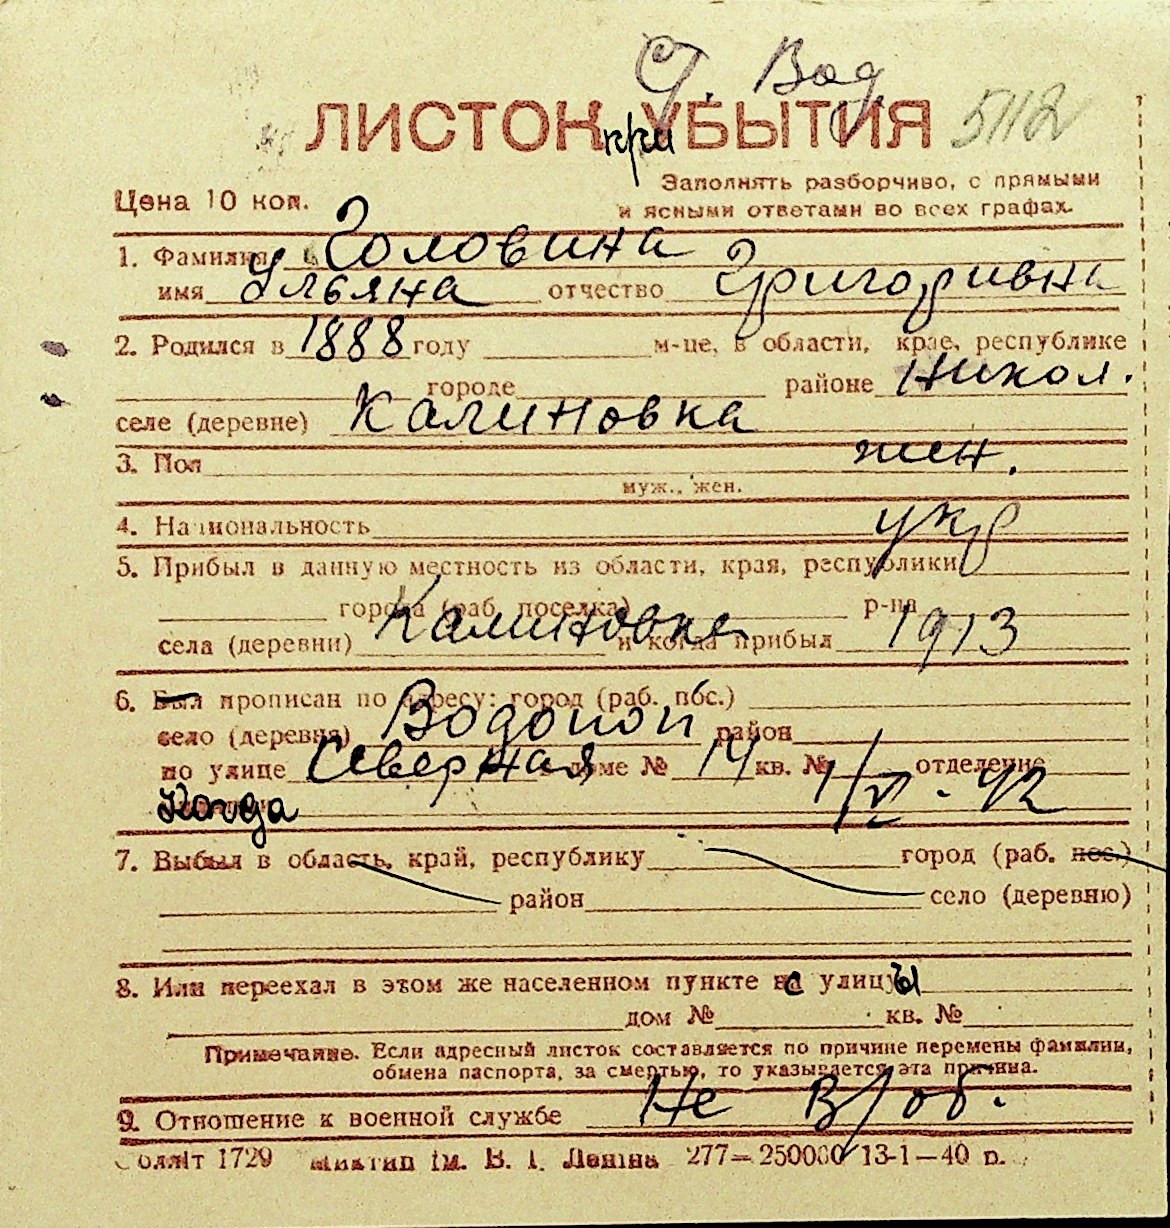 Ст. Вод
ЛИСТОК при УБЫТИЯ 5112
Цена 10 коп.
Заполнять разборчиво, с прямыми
и ясными ответами во всех графах.
1. Фамилия Головина
имя Ульяна отчество Григоривна
2. Родился в 1888 году м-це, в области, крае, республике
городе районе Никол.
селе (деревне) Калиновка
3. Пол жен.
муж., жен.
4. Национальность укр
5. Прибыл в данную местность из области, края, республики
города (раб. поселка) р-на
села (деревни) Калиновка и когда прибыл 1913
6. Был прописан по адресу: город (раб. пос.)
село (деревня) Водопой район
по улице Северная доме № 14 кв. № отделение
Когда 1/VI - 42
7. Выбыл в область, край, республику город (раб. пос.)
район село (деревню)
8. Или переехал в этом же населенном пункте с улицы
дом № кв. №
Примечание. Если адресный листок составляется по причине перемены фамилии,
обмена паспорта, за смертью, то указывается эта причина.
9. Отношение к военной службе Не в/об.
Обліт 1729 Миктип ім. В. І. Леніна 277—250000 13-1—40 р.